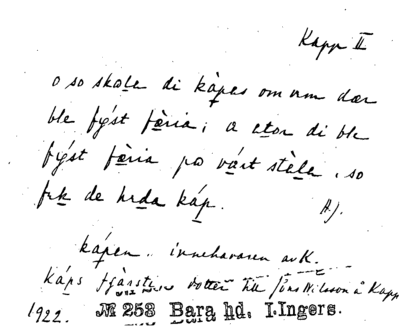 Kapp II
o so skole di kàpes om vm dær
ble fýst færia; a etor di ble
fýst færia po várt stèle, so
fek de hrda káp. A).
kápen. innehavaren av K.
Káps dotter till Jöns Nilsson å Kapp
1922. № 253 Bara hd, I.Ingers.